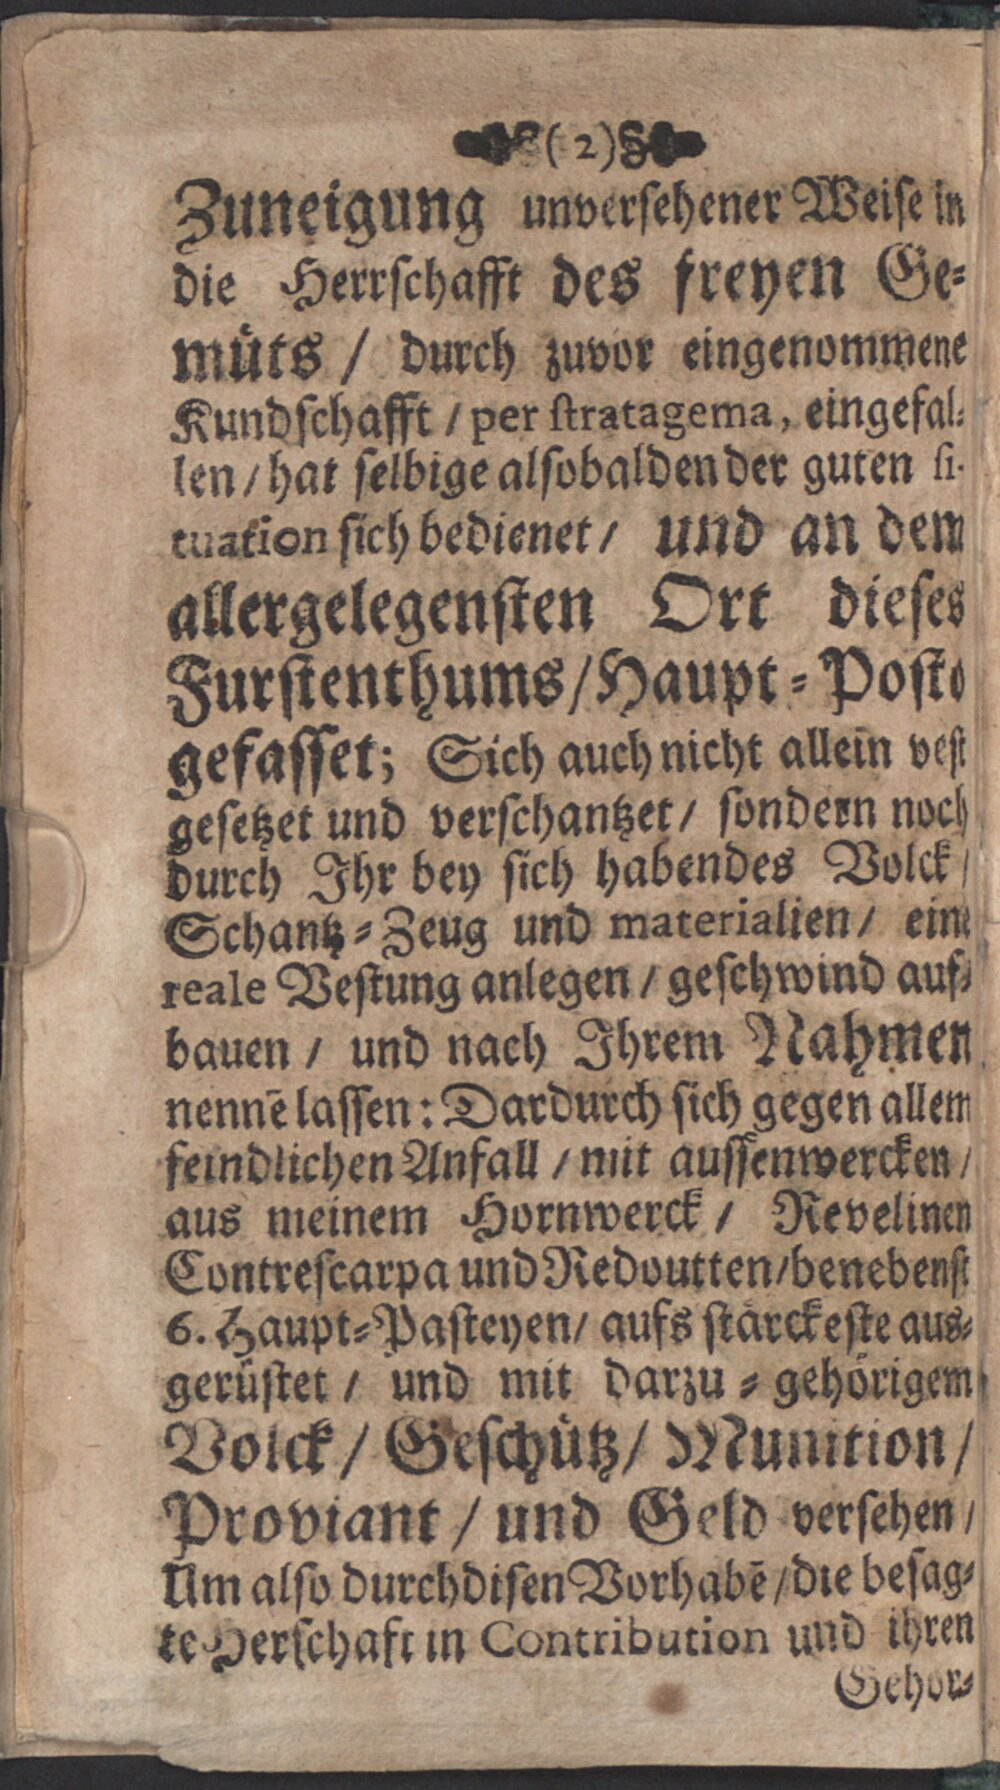 (2)
Zuneigung unversehener Weise in
die Herrschafft des freyen Ge-
müts / durch zuvor eingenommene
Kundschafft / per stratagema, eingefal-
len / hat selbige alsobalden der guten si-
tuation sich bedienet / und an dem
allergelegensten Ort dieses
Furstenthums / Haupt-Posto
gefasset; Sich auch nicht allein vest
gesetzet und verschantzet / sondern noch
durch Ihr bey sich habendes Volck /
Schantz-Zeug und materialien / eine
reale Vestung anlegen / geschwind auf-
bauen / und nach Ihrem Nahmen
nennē lassen: Dardurch sich gegen allem
feindlichen Anfall / mit aussenwercken /
aus meinem Hornwerck / Revelinen
Contrescarpa und Redoutten / benebenst
6. Haupt-Pasteyen / aufs stärckeste aus-
gerüstet / und mit darzu-gehörigem
Volck / Geschütz / Munition /
Proviant / und Geld versehen /
Um also durch disen Vorhabē / die besag-
te Herschaft in Contribution und ihren
Gehor-